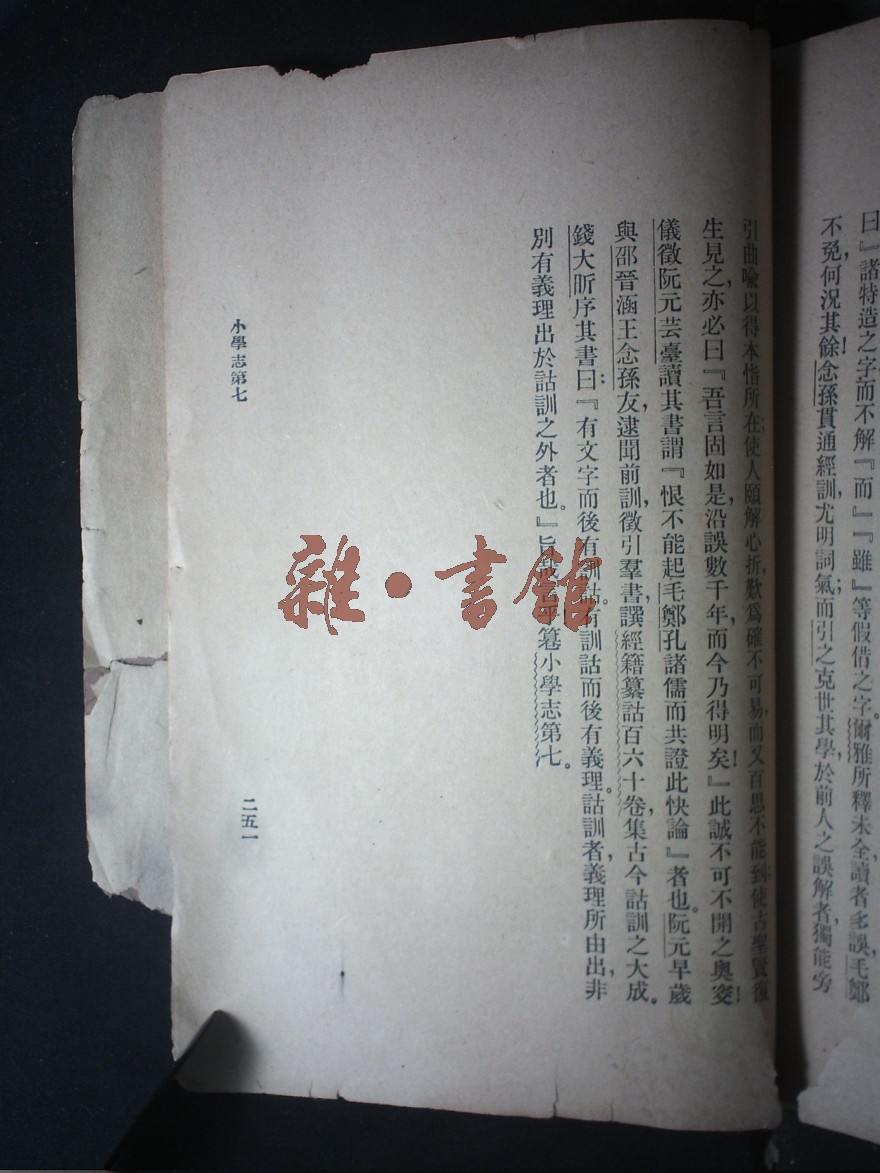 曰『諸特造之字而不解『而』『雖』等假借之字。爾雅所釋未全，讀者多誤。毛鄭
不免，何況其餘！念孫貫通經訓，尤明詞氣；而引之克世其學，於前人之誤解者，獨能旁
引曲喩以得本恉所在；使人頤解心折，歎爲確不可易，而又百思不能到；使古聖賢復
生見之，亦必曰『吾言固如是，沿誤數千年，而今乃得明矣！』此誠不可不開之奧窔！
儀徵阮元芸臺讀其書，謂『恨不能起毛鄭孔諸儒而共證此快論』者也。阮元早歲
與邵晉涵王念孫友，逮聞前訓，徵引羣書，譔經籍纂詁百六十卷，集古今詁訓之大成。
錢大昕序其書曰：『有文字而後有訓詁。有訓詁而後有義理。詁訓者，義理所由出，非
別有義理出於詁訓之外者也。』旨纂小學志第七。
小學志第七
二五一
雜·書館